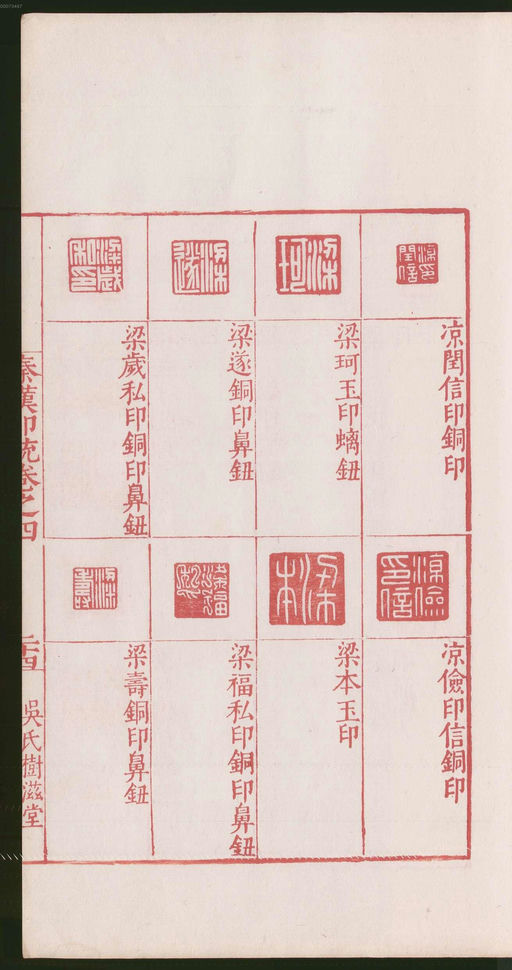 凉閏信印銅印
梁珂玉印螭鈕
梁遂銅印鼻鈕
梁歲私印銅印鼻鈕
凉儉印信銅印
梁本玉印
梁福私印銅印鼻鈕
梁壽銅印鼻鈕
秦漢印統卷之四
二十四
吳氏樹滋堂
00073447